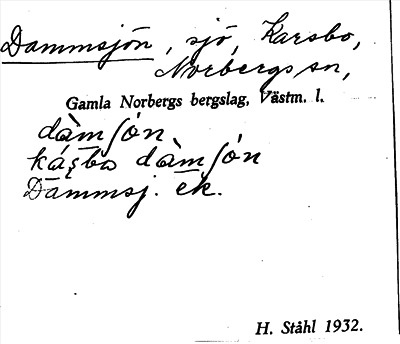 Dammsjön, sjö, Karsbo,
Norbergs sn,
Gamla Norbergs bergslag, Västm. l.
dàmʃón
kásbo dàmʃón
Dammsj. ek.
H. Ståhl 1932.